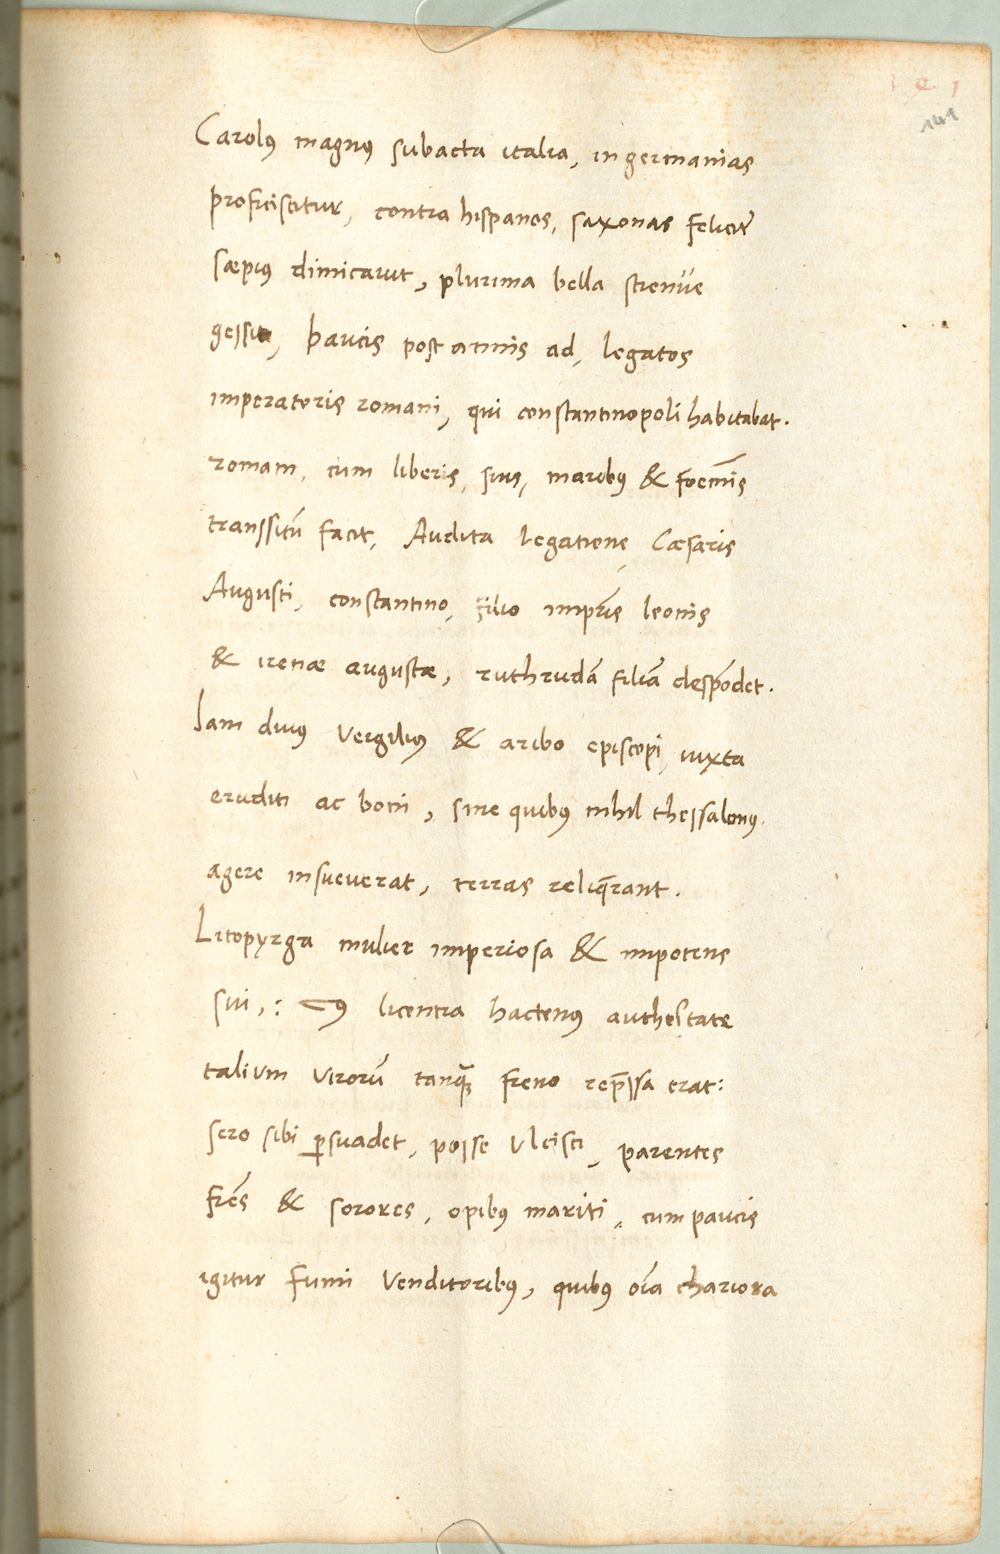 141
Carolus magnus subacta italia, in germanias
proficiscitur, contra hispanos, saxonas felicit̄
sæpius dimicavit, plurima bella strenue
gessit, paucis post annis ad, legatos
imperatoris romani, qui constantinopoli habitabat.
romam, cum liberis, suis, maribus & foem̄is
transsitū facit, Audita legatione Cæsaris
Augusti, constantino, filio imp̄ris leonis
& irenæ augustæ, ruthrudā filiā despōdet.
Iam divus Vergilius & aribo episcopi, iuxta
eruditi ac boni, sine quibus nihil thessalonus.
agere insueverat, terras reliq̄rant.
Litopyrga mulier imperiosa & impotens
sui,: licentia hactenus authestate
talium virorū tanq̄ freno rep̄ssa erat:
sero sibi p̱suadet, posse ulcisci, parentes
fr̄es & sorores, opibus mariti, cum paucis
igitur fumi venditoribus, quibus oīa chariora